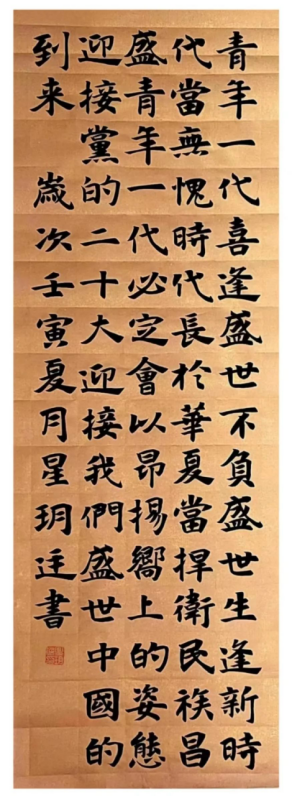 青年一代喜逢盛世不負盛世生逢新時
代當無愧時代長於華夏當捍衛民族昌
盛青年一代必定會以昂揚嚮上的姿態
迎接黨的二十大迎接我們盛世中國的
到來 歲次壬寅夏月星玥廷書